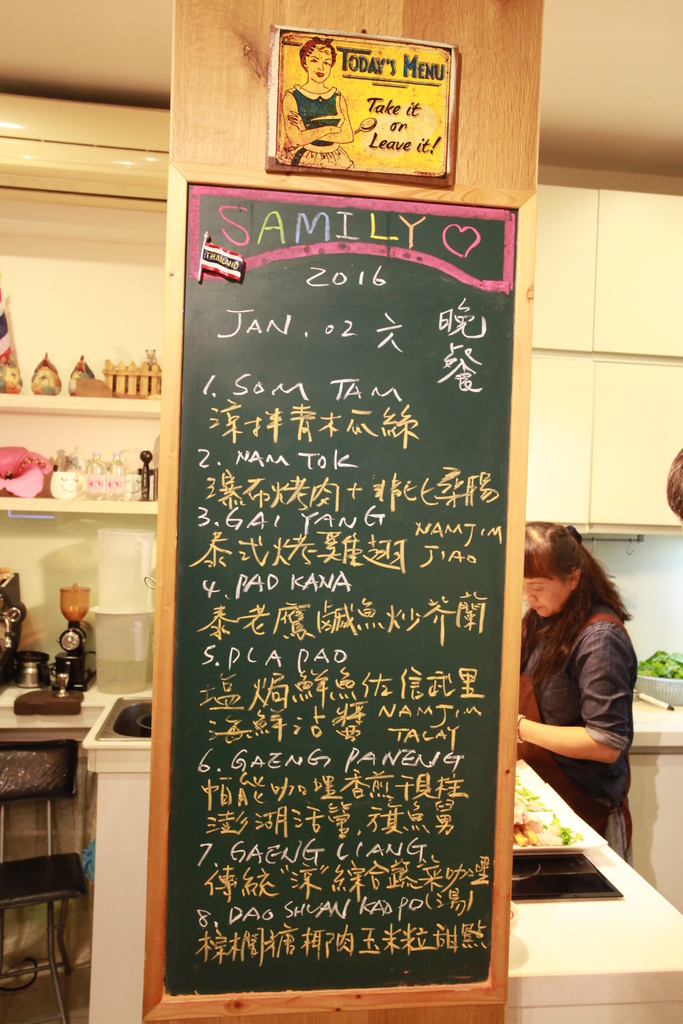 TODAY'S MENU
Take it
or
Leave it!
SAMILY
THAILAND
2016
JAN. 02 六
晚餐
1. SOM TAM
涼拌青木瓜絲
2. NAM TOK
瀑布烤肉+
3. GAI YANG
泰式烤雞翅
NAMJIM
JIAO
4. PAD KANA
泰老鷹鹹魚炒芥蘭
5. PLA PAO
塩焗鮮魚佐信武里
海鮮沾醬
NAMJIM
TALAY
6. GAENG PANENG
帕能咖哩香煎干貝柱
澎湖活管,旗魚舅
7 GAENG LIANG
傳統"涼"綜合蔬菜咖哩
(湯)
8. DAO SHUAN KAO PO
棕櫚糖椰肉玉米粒甜點